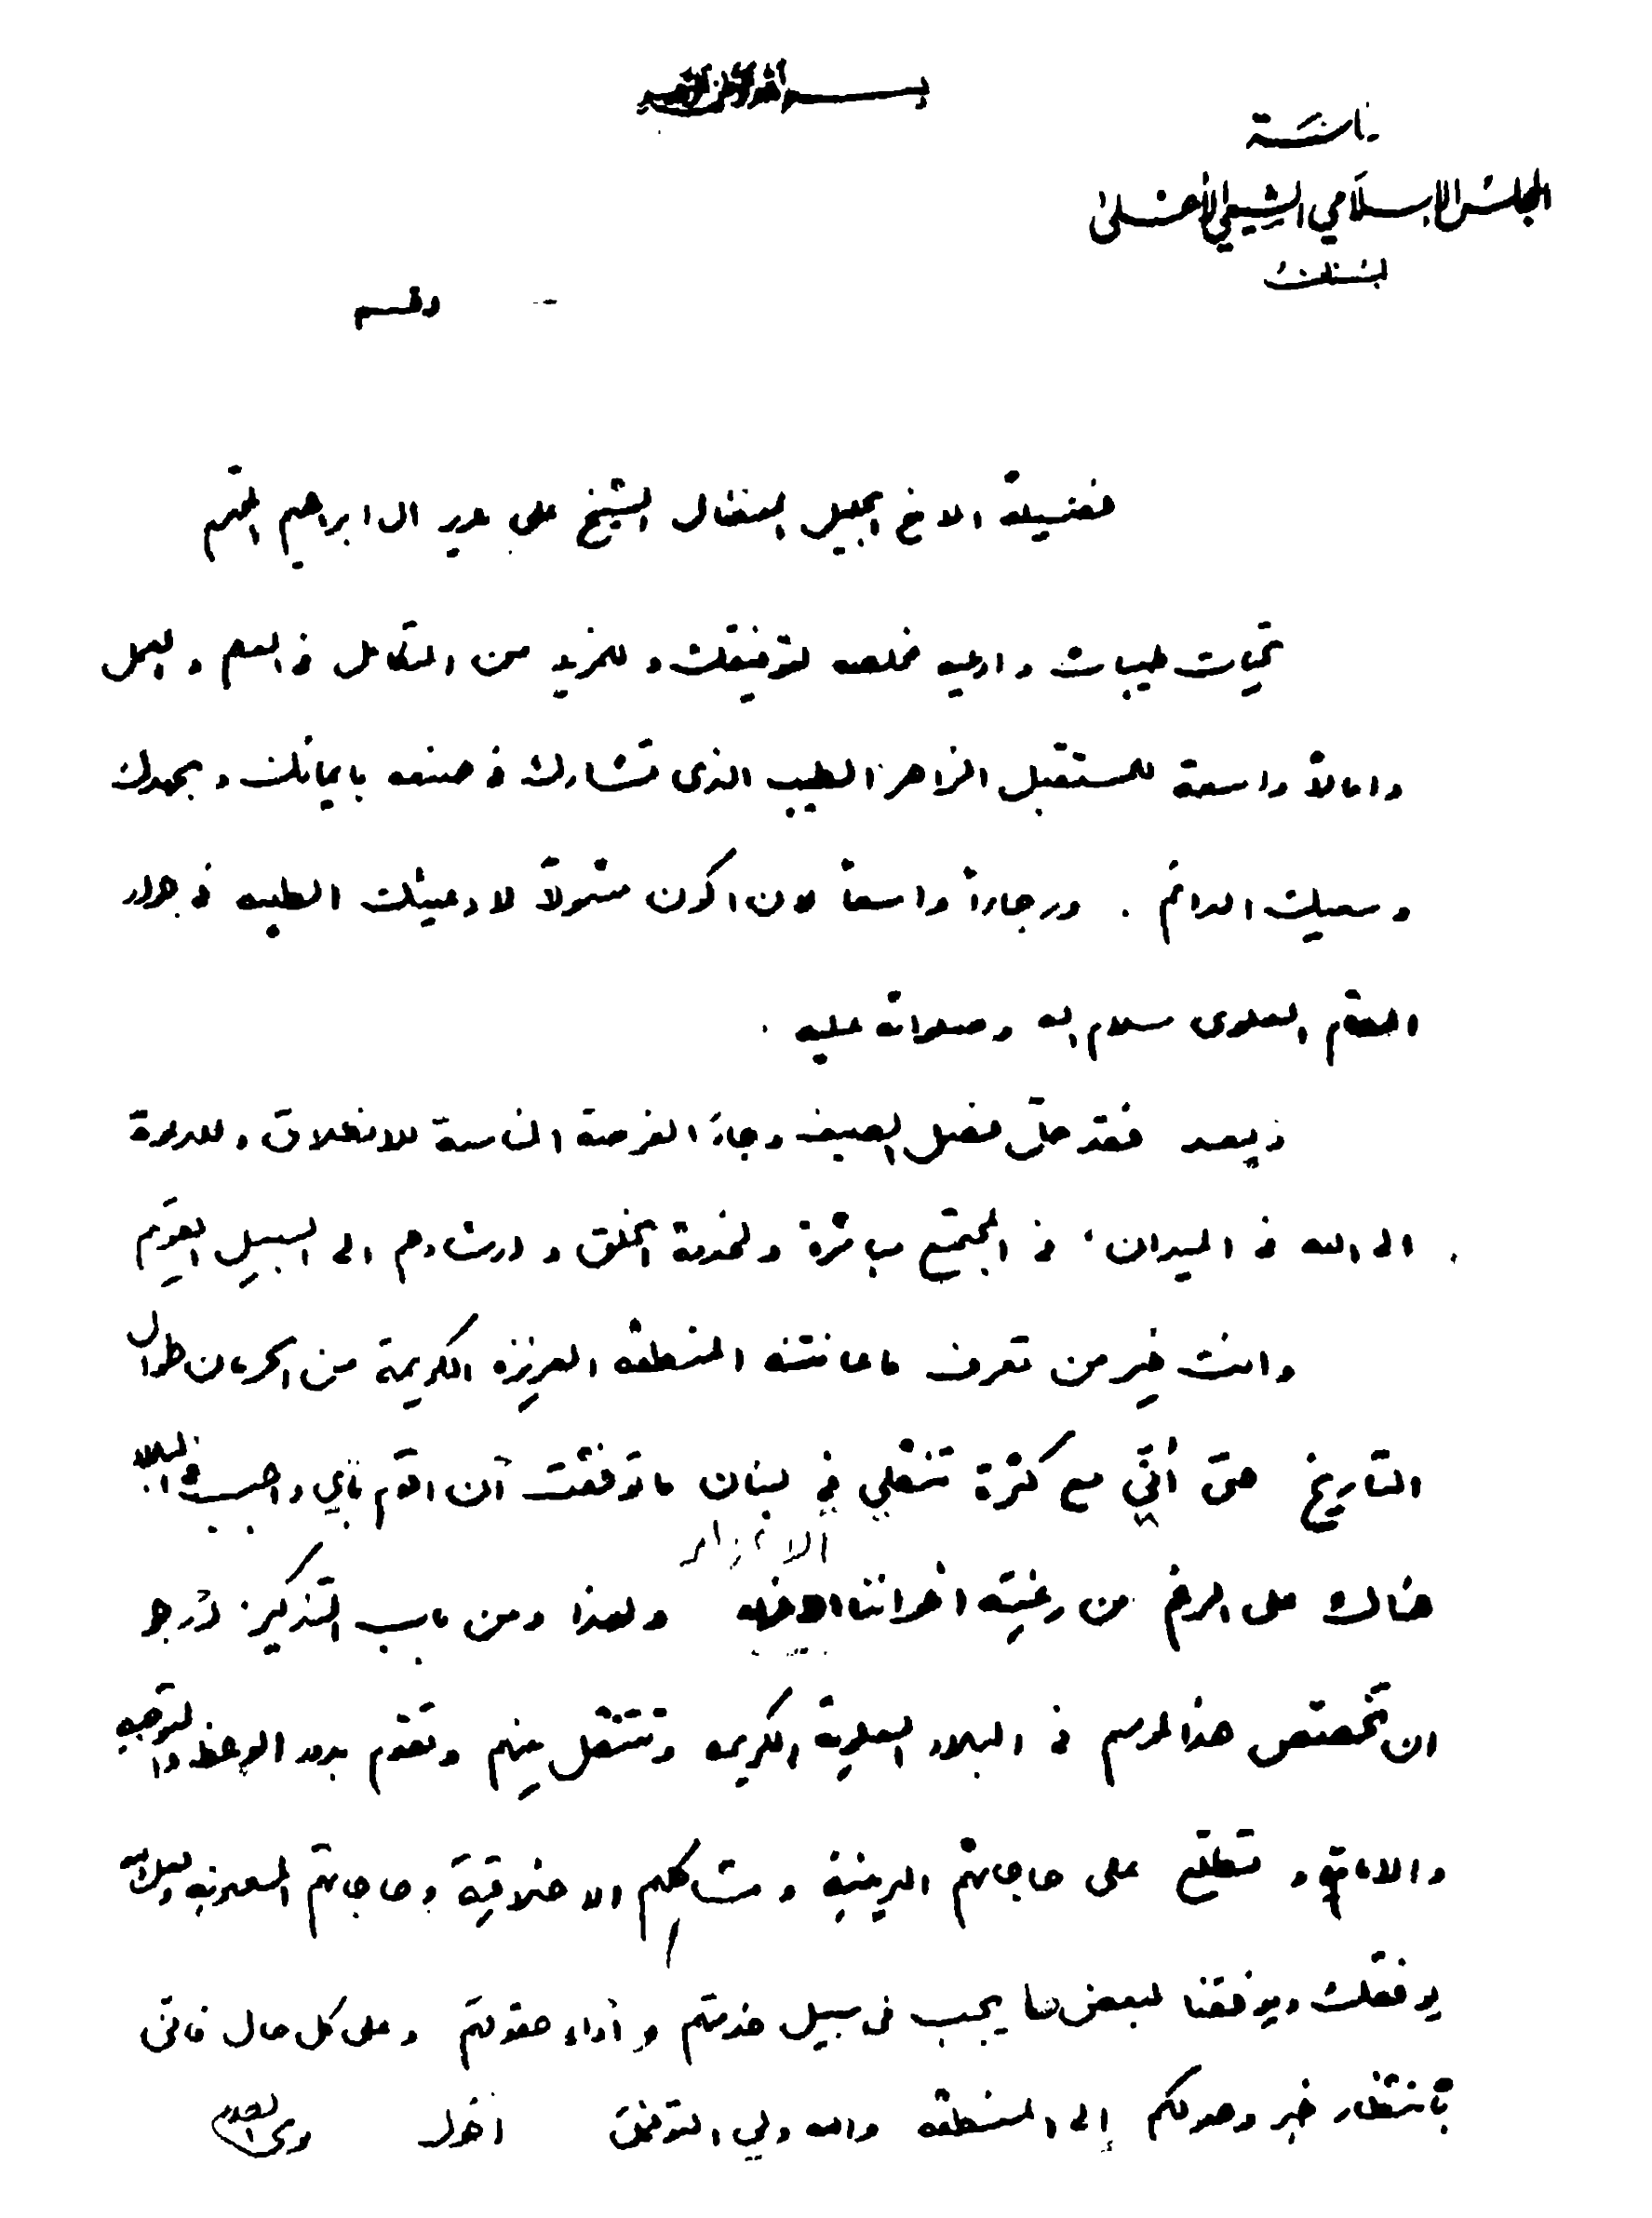 بسم الله الرحمن الرحيم
رئاسة
المجلس الإسلامي الشيعي الأعلى
لبنان
رقم
فضيلة الاخ الجليل المفضال الشيخ علي عزيز ال ابراهيم المحترم
تحيات طيبات وادعيه مخلصه لتوفيقك وللمزيد من التكامل في العلم والعمل
وامالاً واسعة للمستقبل الزاهر الطيب الذي تشارك في صنعه بايمانك وبجهدك
وسعيك الدائم . ورجاءاً واسعاً لان اكون مشمولاً لادعيتك الطيبه في جوار
المقام العلوي سلام الله وصلواته عليه .
وبعد فقد حلّ فصل الصيف وجاءَ الفرصة المناسبة للانطلاق وللدعوة
الى الله في الميدان، في المجتمع مباشرة ولخدمة الخلق وارشادهم الى السبيل القويم .
وانت خير من تعرف ما عانته المنطقه العزيزه الكريمة من الحرمان طوال
التاريخ حتى أنّي مع كثرة تنقلي في لبنان ما توفقت أن اقوم بأي واجب في البلاد
هناك على الرغم من رغبته اخواننا الابرار ولهذا ومن باب التذكير نرجو
ان تختص هذا الموسم في البلاد العلوية الكريمه وتتنقل بينهم وتقوم بدور الوعظ والتوجيه
والامامة وتطلع على حاجاتهم الدينية ومشاكلهم الاخلاقية وحاجاتهم المعنويه لعل الله
يوفقك ويوفقنا لبعض ما يجب في سبيل خدمتهم وأداء حقوقهم وعلى كل حال فانى
بانتظار خبر وصولكم إلى المنطقه والله ولي التوفيق اخوك موسى الصدر